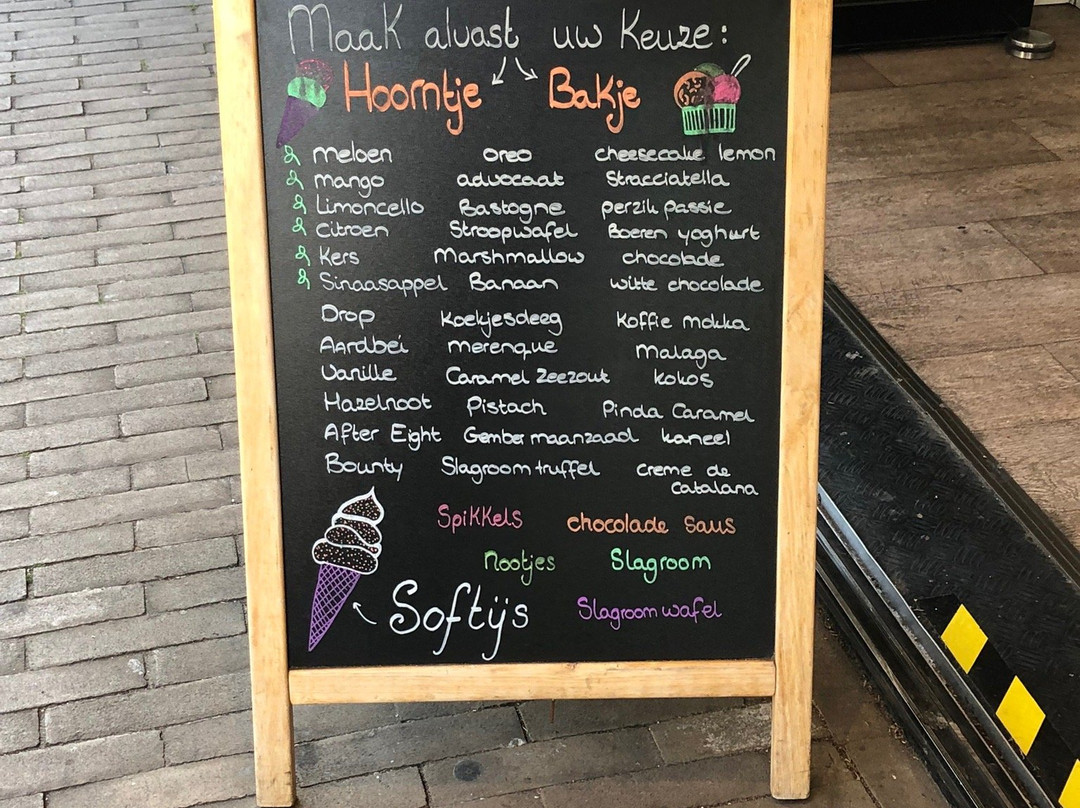 Maak alvast uw Keuze:
Hoorntje Bakje
Meloen Oreo cheesecake lemon
Mango advocaat Stracciatella
Limoncello Bastogne perzik passie
Citroen Stroopwafel Boeren yoghurt
Kers Marshmallow chocolade
Sinaasappel Banaan witte chocolade
Drop Koekjesdeeg Koffie mokka
Aardbei merenque Malaga
Vanille Caramel Zeezout kokos
Hazelnoot Pistach Pinda Caramel
After Eight Gember maanzaad kaneel
Bounty Slagroom truffel creme de
Catalana
Spikkels chocolade Saus
Nootjes Slagroom
Softijs Slagroom wafel